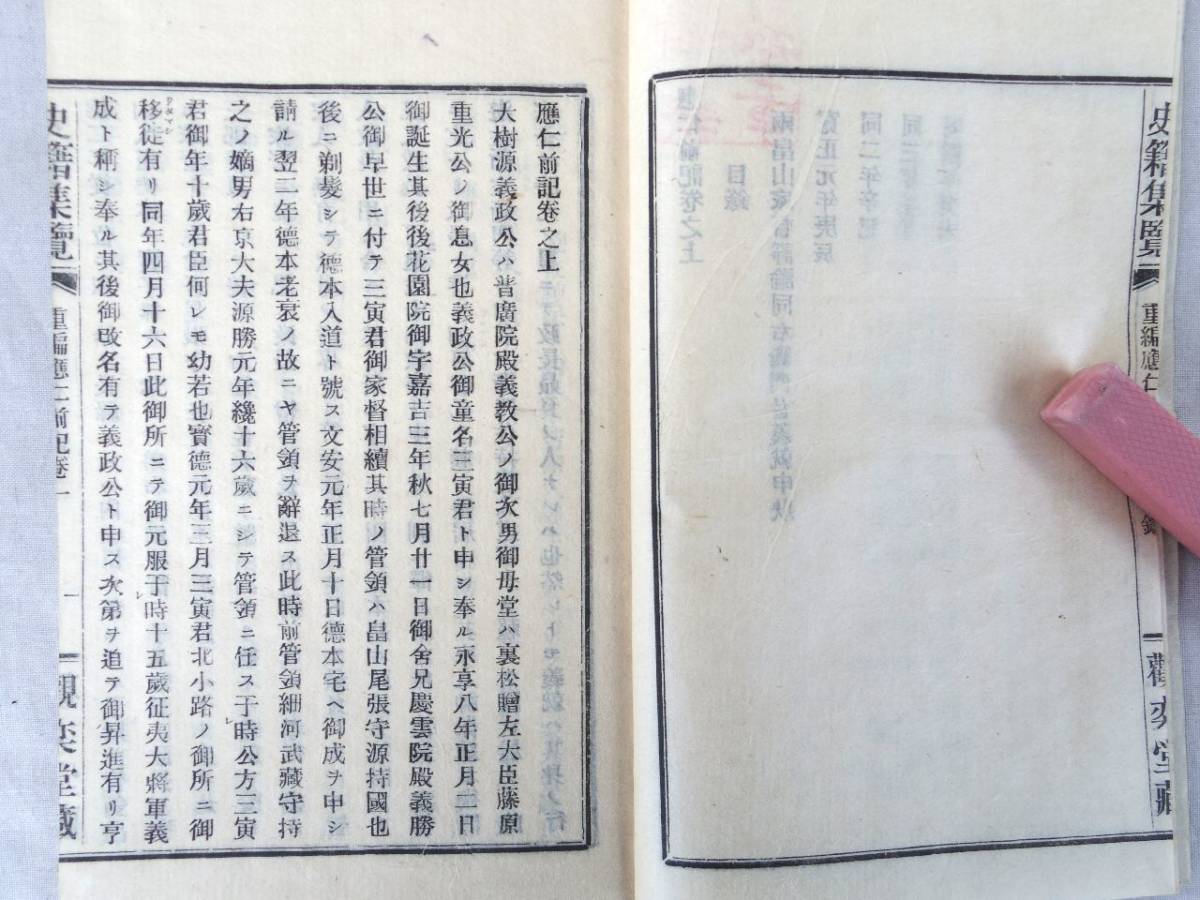 史籍集覽
重編應仁
觀奕堂藏
應仁前記卷之上
大樹源義政公ハ普廣院殿義教公ノ御次男御母堂ハ裏松贈左大臣藤原
重光公ノ御息女也義政公御童名三寅君ト申シ奉ル永享八年正月二日
御誕生其後後花園院御宇嘉吉三年秋七月廿一日御舍兄慶雲院殿義勝
公御早世ニ付テ三寅君御家督相續其時ノ管領ハ畠山尾張守源持國也
後ニ剃髮シテ德本入道ト號ス文安元年正月十日德本宅ヘ御成ヲ申シ
請ル翌二年德本老衰ノ故ニヤ管領ヲ辭退ス此時前管領細河武藏守持
之ノ嫡男右京大夫源勝元年纔十六歲ニシテ管領ニ任ス于時公方三寅
君御年十歲君臣何レモ幼若也寶德元年三月三寅君北小路ノ御所ニ御
移徙有リ同年四月十六日此御所ニテ御元服于時十五歲征夷大將軍義
成ト稱シ奉ル其後御改名有テ義政公ト申ス次第ヲ追テ御昇進有リ亨
史籍集覽
重編應仁前記卷一
一
觀奕堂藏